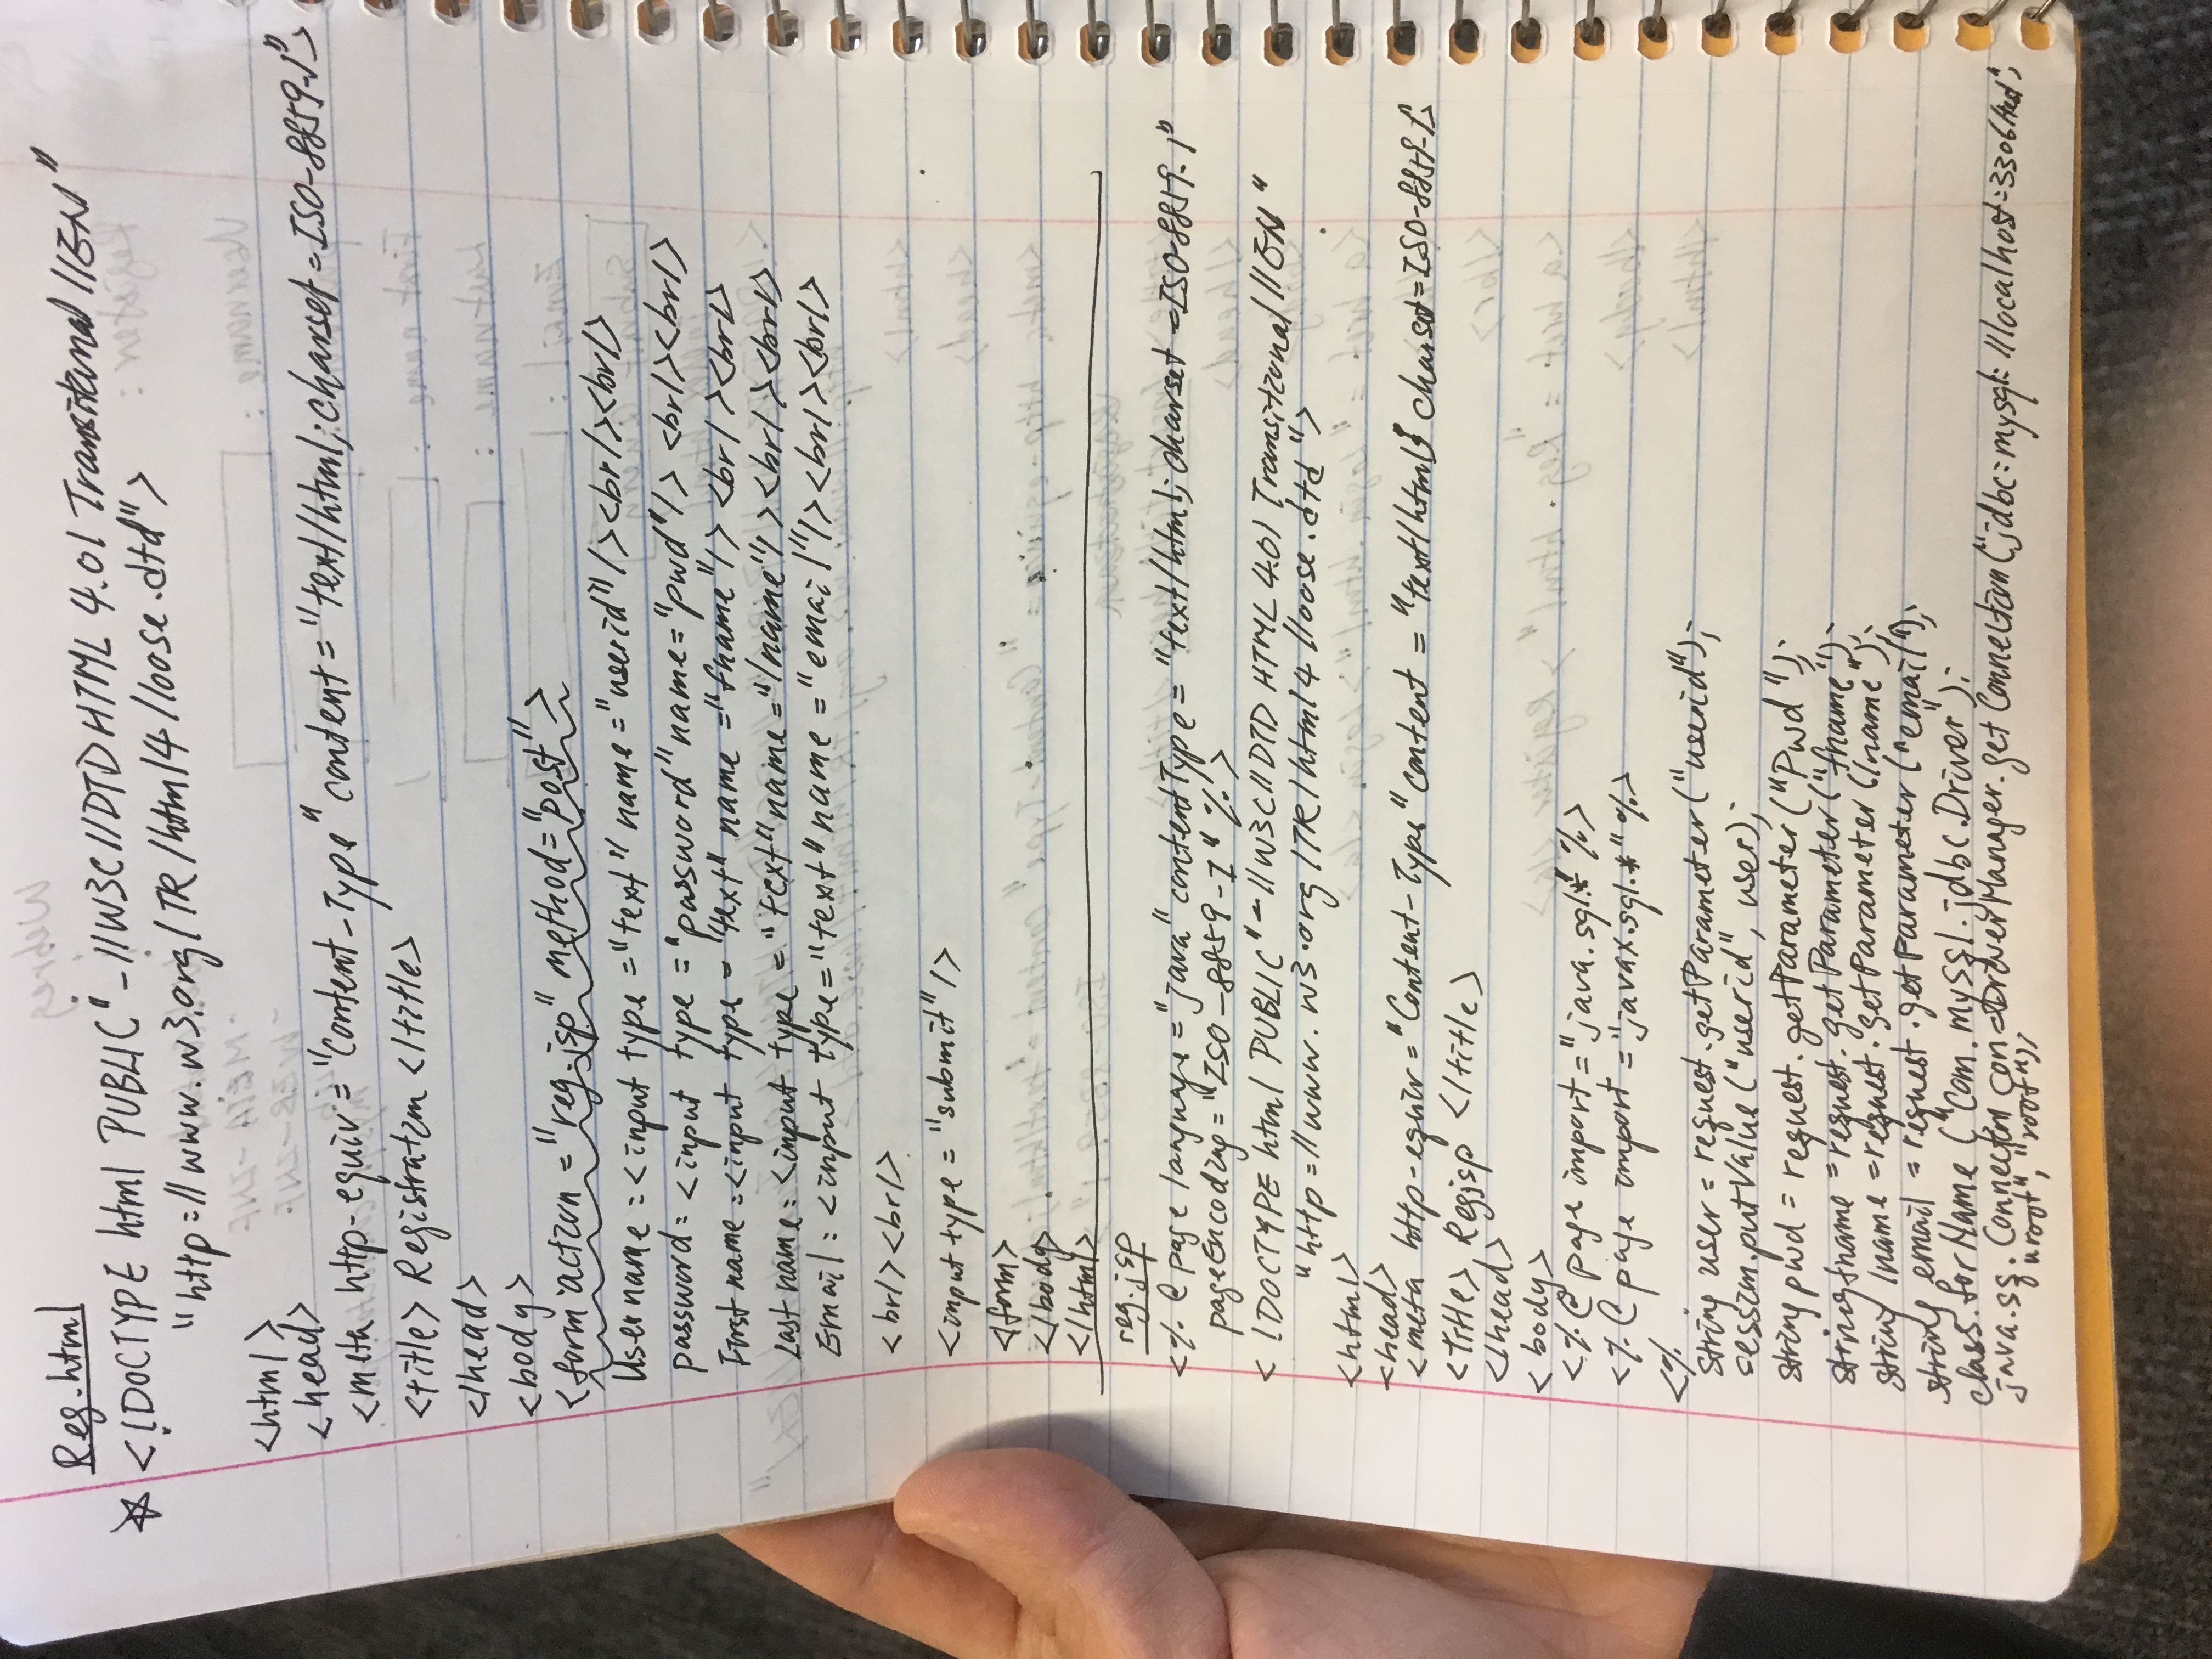 Reg.html
<!DOCTYPE html PUBLIC "-//W3C//DTD HTML 4.01 Transitional //EN"
"http://www.w3.org/TR/html4/loose.dtd">
<html>
<head>
<meta http-equiv="Content-Type" content="text/html; charset=ISO-8859-1">
<title> Registration </title>
</head>
<body>
<form action="reg.jsp" method="post">
Username:<input type="text" name="userid"/><br/><br/>
password:<input type="password" name="pwd"/> <br/><br/>
First name:<input type="text" name="fname"/> <br/><br/>
Last name:<input type="text" name="lname"/><br/><br/>
Email:<input type="text" name="email"/><br/><br/>
<br/><br/>
<input type="submit"/>
</form>
</body>
</html>
reg.jsp
<%@ page language="java" contentType="text/html; charset=ISO-8859-1"
pageEncoding="ISO-8859-1" %>
<!DOCTYPE html PUBLIC "-//W3C//DTD HTML 4.01 Transitional //EN"
"http://www.w3.org/TR/html4/loose.dtd">
<html>
<head>
<meta http-equiv="Content-Type" content="text/html; charset=ISO-8859-1>
<title> Regjsp </title>
</head>
<body>
<%@ page import="java.sql.*" %>
<%@ page import="javax.sql.*" %>
<%
String user = request.getParameter("userid");
session.putValue("userid", user);
string pwd = request.getParameter("Pwd");
string fname = request.getParameter("fname");
string lname = request.getParameter(lname");
string email = request.getParameter("email");
class.forName ("com.mysql.jdbc.Driver");
java.sq. Connection con=DriverManager.getConnection("jdbc:mysql://localhost:3306/test",
"root", "root");